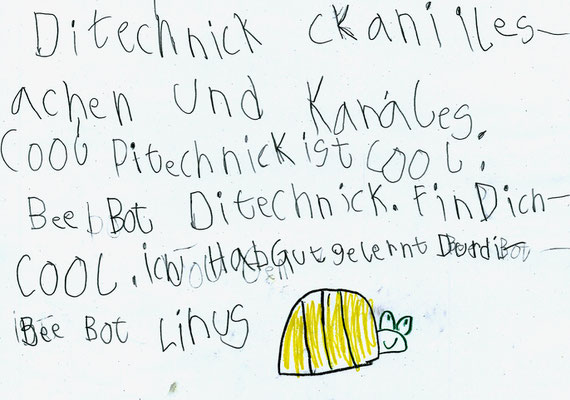 Ditechnick ckanilles-
achen und Kanales.
COOL Ditechnick ist COOL.
Beel Bot Ditechnick. FinDich-
COOL. ich Hab Gut gelernt Durdi-
Bee Bot Linus